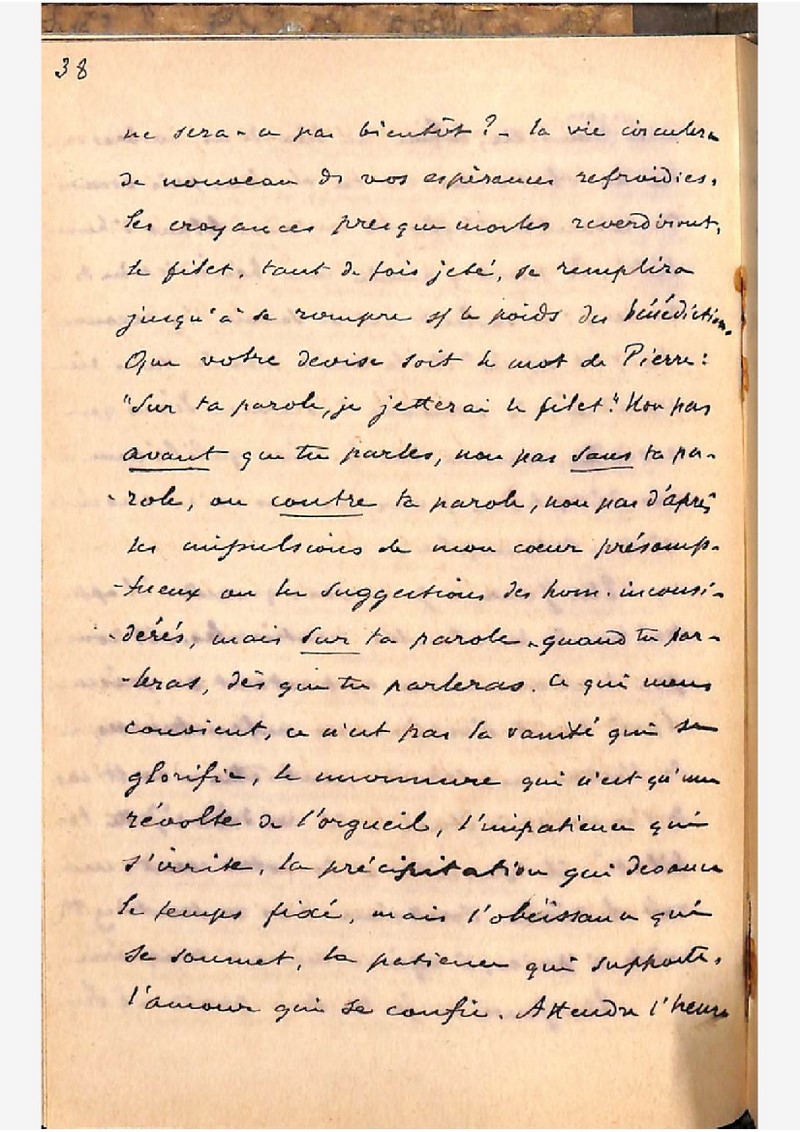 38
ne sera-ce pas bientôt? - la vie circulera
de nouveau ds vos espérances refroidies,
les croyances presque mortes reverdiront,
le filet, tant de fois jeté, se remplira
jusqu'à se rompre s/ le poids des bénédictions.
Que votre devise soit le mot de Pierre:
"Sur ta parole, je jetterai le filet." Non pas
avant que tu parles, non pas sans ta pa-
-role, ou contre ta parole, non pas d'après
les impulsions de mon cœur présomp-
-tueux ou les suggestions des hom. inconsi-
-dérés, mais sur ta parole, quand tu par-
-leras, dès que tu parleras. Ce qui nous
convient, ce n'est pas la vanité qui se
glorifie, le murmure qui n'est qu'une
révolte de l'orgueil, l'impatience qui
s'irrite, la précipitation qui devance
le temps fixé, mais l'obéissance qui
se soumet, la patience qui supporte,
l'amour qui se confie. Attendre l'heure